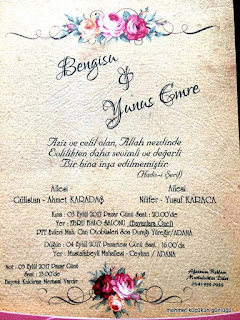 Bengisu
&
Yunus Emre
Aziz ve celil olan, Allah nezdinde
Evlilikten daha sevimli ve değerli
Bir bina inşa edilmemiştir.
(Hadis-i Şerif)
Ailesi
Ailesi
Gülistan - Ahmet KARADAŞ
Nilüfer - Yusuf KARACA
Kına : 03 Eylül 2017 Pazar Günü Saat : 20.00'de
Yer : EBRU BALO SALONU
PTT Evleri Mah. Can Otobüsleri Son Durağı Yüreğir/ADANA
Düğün : 04 Eylül 2017 Pazartesi Günü Saat : 16.00'da
Yer : Mustafabeyli Mahallesi - Ceyhan / ADANA
Not : 03 Eylül 2017 Pazar Günü
Saat : 13.00'da
Bayrak Kaldırma Merasimi Vardır.
mehmet kabakcın günlüğü